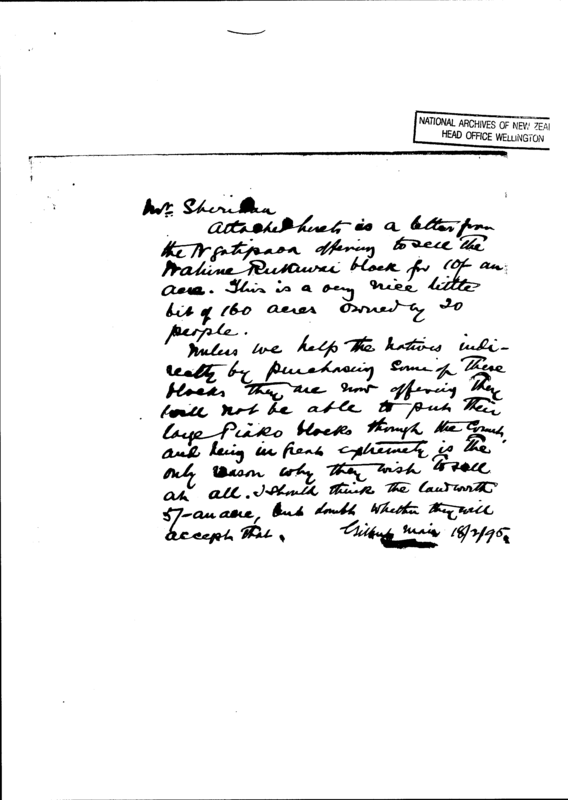 NATIONAL ARCHIVES OF NEW ZEA
HEAD OFFICE WELLINGTON
Mr. Sheridan
Attached hereto is a letter from
the Ngatipaoa offering to sell the
Wahine Rukuwai block for 10/ an
acre. This is a very nice little
bit of 160 acres owned by 20
people.
Unless we help the Natives indi-
rectly by purchasing some of These
blocks they are now offering They
will not be able to put their
large Piako blocks through the Court,
and being in great extremety is the
only reason why they wish to sell
at all. I should think the land worth
5/- an acre, but doubt whether they will
accept that.
Gilbert Mair 18/2/95.